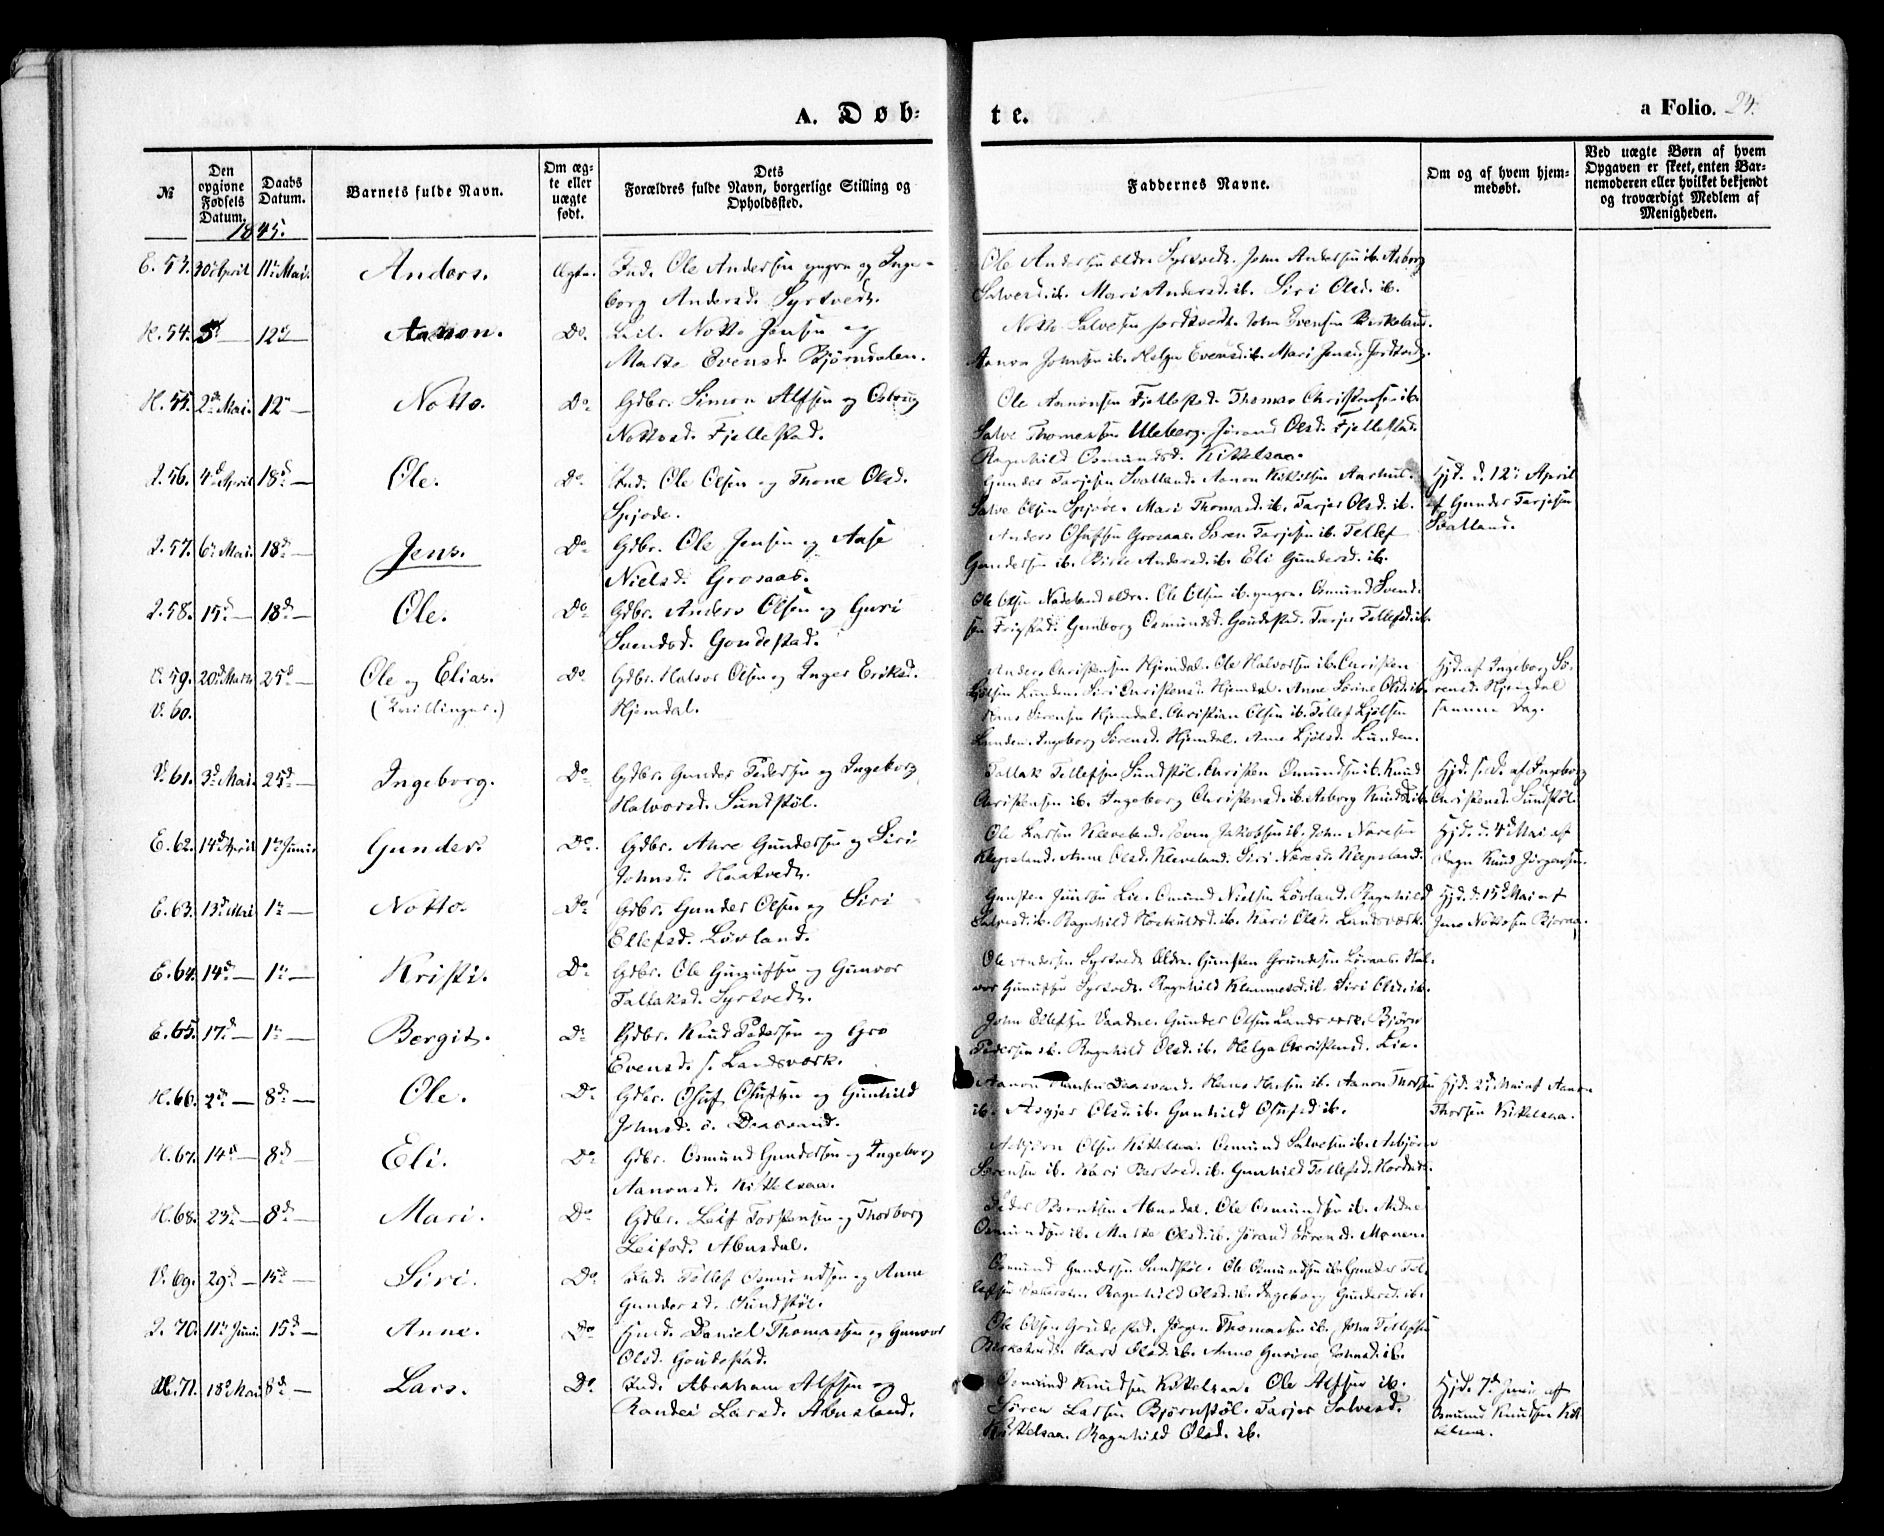 A. Døb-
te.
a Folio. 24.
№
Den opgivne Fødsels Datum.
Daabs Datum.
Barnets fulde Navn.
Om ægte eller uægte født.
Dets Forældres fulde Navn, borgerlige Stilling og Opholdssted.
Faddernes Navne.
Om og af hvem hjemmedøbt.
Ved uægte Børn af hvem Opgaven er skeet, enten Barnemoderen eller hvilket bekjendt og troværdigt Medlem af Menigheden.
1845.
E. 53. 30te April 11te Mai. Anders. Ægte. Ind. Ole Andersen yngre og Inge-
borg Andersd. Syrtvedt.
Ole Andersen eldre Syrtvedt. John Andersen ib. Asborg
Salvesd. ib. Mari Andersd. ib. Siri Olsd. ib.
H. 54. 5d — 12te — Aanon. Do. Notto Jensen og
Malte Evensd. Bjørndalen.
Notto Salvesen Jortveit. John Evensen Birkeland.
Aanon Johnsen ib. Helga Evensd. ib. Mari Jensd. Jortveit.
H. 55. 2den Mai. 12te — Notto. Do. Gdbr. Simon Alfsen og Osborg
Nottosd. Fjellestad.
Ole Aanonsen Fjellestad. Thomas Christensen ib.
Salve Thomassen Uleberg. Jørand Olsd. Fjellestad.
Ragnhild Osmundsd. Kittelsaa.
I. 56. 4de April 18de — Ole. Do. Ind. Ole Olsen og Thone Olsd.
Spjøde.
Gunder Tarjesen Svalland. Aanon Kittelsen Aarhus.
Salve Olsen Spjøde. Mari Thomasd. ib. Tarjer Olsd. ib.
Hjd. d. 12te April
af Gunder Tarjesen
Svalland.
I. 57. 6te Mai. 18de — Jens. Do. Gdbr. Ole Jensen og Aase
Nielsd. Grosaas.
Anders Olufsen Grosaas. Søren Tarjesen ib. Tellef
Gundersen ib. Birte Andersd. ib. Eli Gundersd. ib.
I. 58. 15de — 18de — Ole. Do. Gdbr. Anders Olsen og Guri
Svendsd. Goudestad.
Ole Olsen Nateland eldre. Ole Olsen ib. yngre. Osmund Svend-
sen Frigstad. Gunborg Osmundsd. Goudestad. Tarjer Tellefsd. ib.
V. 59. 20de Marts 25de — Ole og Elias. Do. Gdbr. Halvor Olsen og Inger Eriksd.
V. 60. (Tvillinger.) Hjemdal.
Anders Christensen Hjemdal. Ole Halvorsen ib. Christen
Ljølsen Lunden. Siri Christensd. Hjemdal. Anne Sørine Olsd. ib.
Hans Sørensen Hjemdal. Christian Olsen ib. Tellef Ljølsen
Lunden. Ingeborg Sørensd. Hjemdal. Anne Ljølsd. Lunden.
Hjd. af Ingeborg Sø-
rensd. Hjemdal
samme Dag.
V. 61. 3die Mai. 25de — Ingeborg. Do. Gdbr. Gunder Pedersen og Ingeborg
Halvorsd. Sundstøl.
Tallak Tellefsen Sundstøl. Christen Omundsen ib. Knud
Christensen ib. Ingeborg Christensd. ib. Asborg Knudsd. ib.
Hjd. s. d. af Ingeborg
Christensd. Sundstøl.
E. 62. 14de April 1ste Juni. Gunder. Do. Gdbr. Anre Gundersen og Siri
Johnsd. Haatvedt.
Ole Larsen Kleveland. Even Jakobsen ib. John Naresen
Klepsland. Anne Olsd. Kleveland. Siri Naresd. Klepsland.
Hjd. d. 4de Mai af
Knud Jørgensen.
E. 63. 13de Mai 1ste — Notto. Do. Gdbr. Gunder Olsen og Siri
Ellefsd. Løvland.
Gunsten Lie. Omund Nielsen Løvland. Ragnhild
Salvesd. ib. Ragnhild Hoskuldsd. ib. Kari Olsd. Landsværk.
Hjd. d. 15de Mai af
Jens Nottosen Bjoraa.
E. 64. 14de — 1ste — Kristi. Do. Gdbr. Ole Gunufsen og Gunvor
Tallaksd. Syrtvedt.
Ole Andersen Syrtvedt eldre. Gunsten Grundesen Løvaas. Hal-
vor Gunufsen Syrtvedt. Ragnhild Klemmetsd. ib. Siri Olsd. ib.
E. 65. 17de — 1ste — Bergit. Do. Gdbr. Knud Pedersen og Gro
Evensd. s. Landsværk.
John Ellefsen Vaadne. Gunder Olsen Landsværk. Bjørn
Pedersen ib. Ragnhild Olsd. ib. Helga Christensd. Lie.
H. 66. 2den — 8de — Ole. Do. Gdbr. Oluf Olufsen og Gunhild
Johnsd. i Daasvand.
Aanon Hansen Daasvand. Hans Hansen ib. Aanon Thorsen
ib. Asgjer Olsd. ib. Gunhild Olufsd. ib.
Hjd. 2den Mai af Aanon
Thorsen Kittelsaa.
H. 67. 14de — 8de — Eli. Do. Gdbr. Osmund Gundersen og Ingeborg
Aanonsd. Kittelsaa.
Asbjørn Olsen Kittelsaa. Osmund Salvesen ib. Asbjørn
Sørensen ib. Kari Berthesd. ib. Gunhild Tellefsd.
H. 68. 23de — 8de — Mari. Do. Gdbr. Leif Torstensen og Thorborg
Leifsd. Abusdal.
Peder Berntsen Abusdal. Ole Osmundsen ib.
Osmundsen ib. Malte Olsd. ib. Jørand Sørensd. Monen.
V. 69. 29de — 15de — Siri. Do. Ind. Tellef Osmundsen og Anne
Gundersd. Sundstøl.
Osmund Gundersen Sundstøl. Ole Osmundsen ib. Gunder Tel-
lefsen Ragnhild Olsd. ib. Ingeborg Gundersd. ib.
I. 70. 11te Juni. 15de — Anne. Do. Daniel Thomassen og Gunvor
Olsd. Goudestad.
Ole Olsen Goudestad. Jørgen Thomassen ib. John Tellefsen
Birketveit. Kari Olsd. ib. Anne Gurine Johnsd. ib.
H. 71. 18de Mai 8de — Lars. Do. Ind. Abraham Alfsen og
Randei Larsd. Abusland.
Osmund Knudsen Kittelsaa. Ole Alfsen ib.
Søren Larsen Bjørnstøl. Tarjer Salvesd.
Kittelsaa. Ragnhild Olsd. ib.
Hjd. 7de Juni af
Osmund Knudsen Kit-
telsaa.